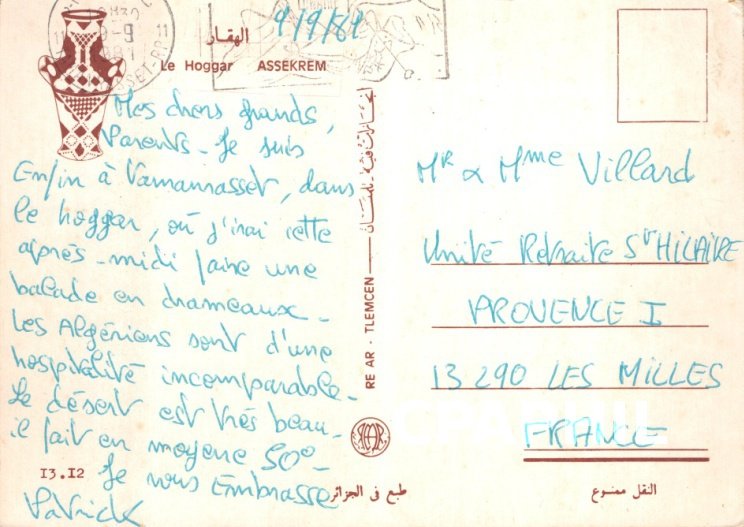 الهقار
Le Hoggar ASSEKREM
9/9/81
Mes chers grands,
Parents - Je suis
Enfin à Tamanrasset, dans
le hoggar, où j'irai cette
après-midi faire une
balade en chameaux -
Les Algériens sont d'une
hospitalité incomparable -
Le désert est très beau -
il fait en moyenne 50° -
Je vous Embrasse
Patrick
13.12
RE AR - TLEMCEN
طبع في الجزائر
Mr & Mme Villard
Unité Retraite St HILAIRE
PROVENCE I
13 290 LES MILLES
FRANCE
النقل ممنوع